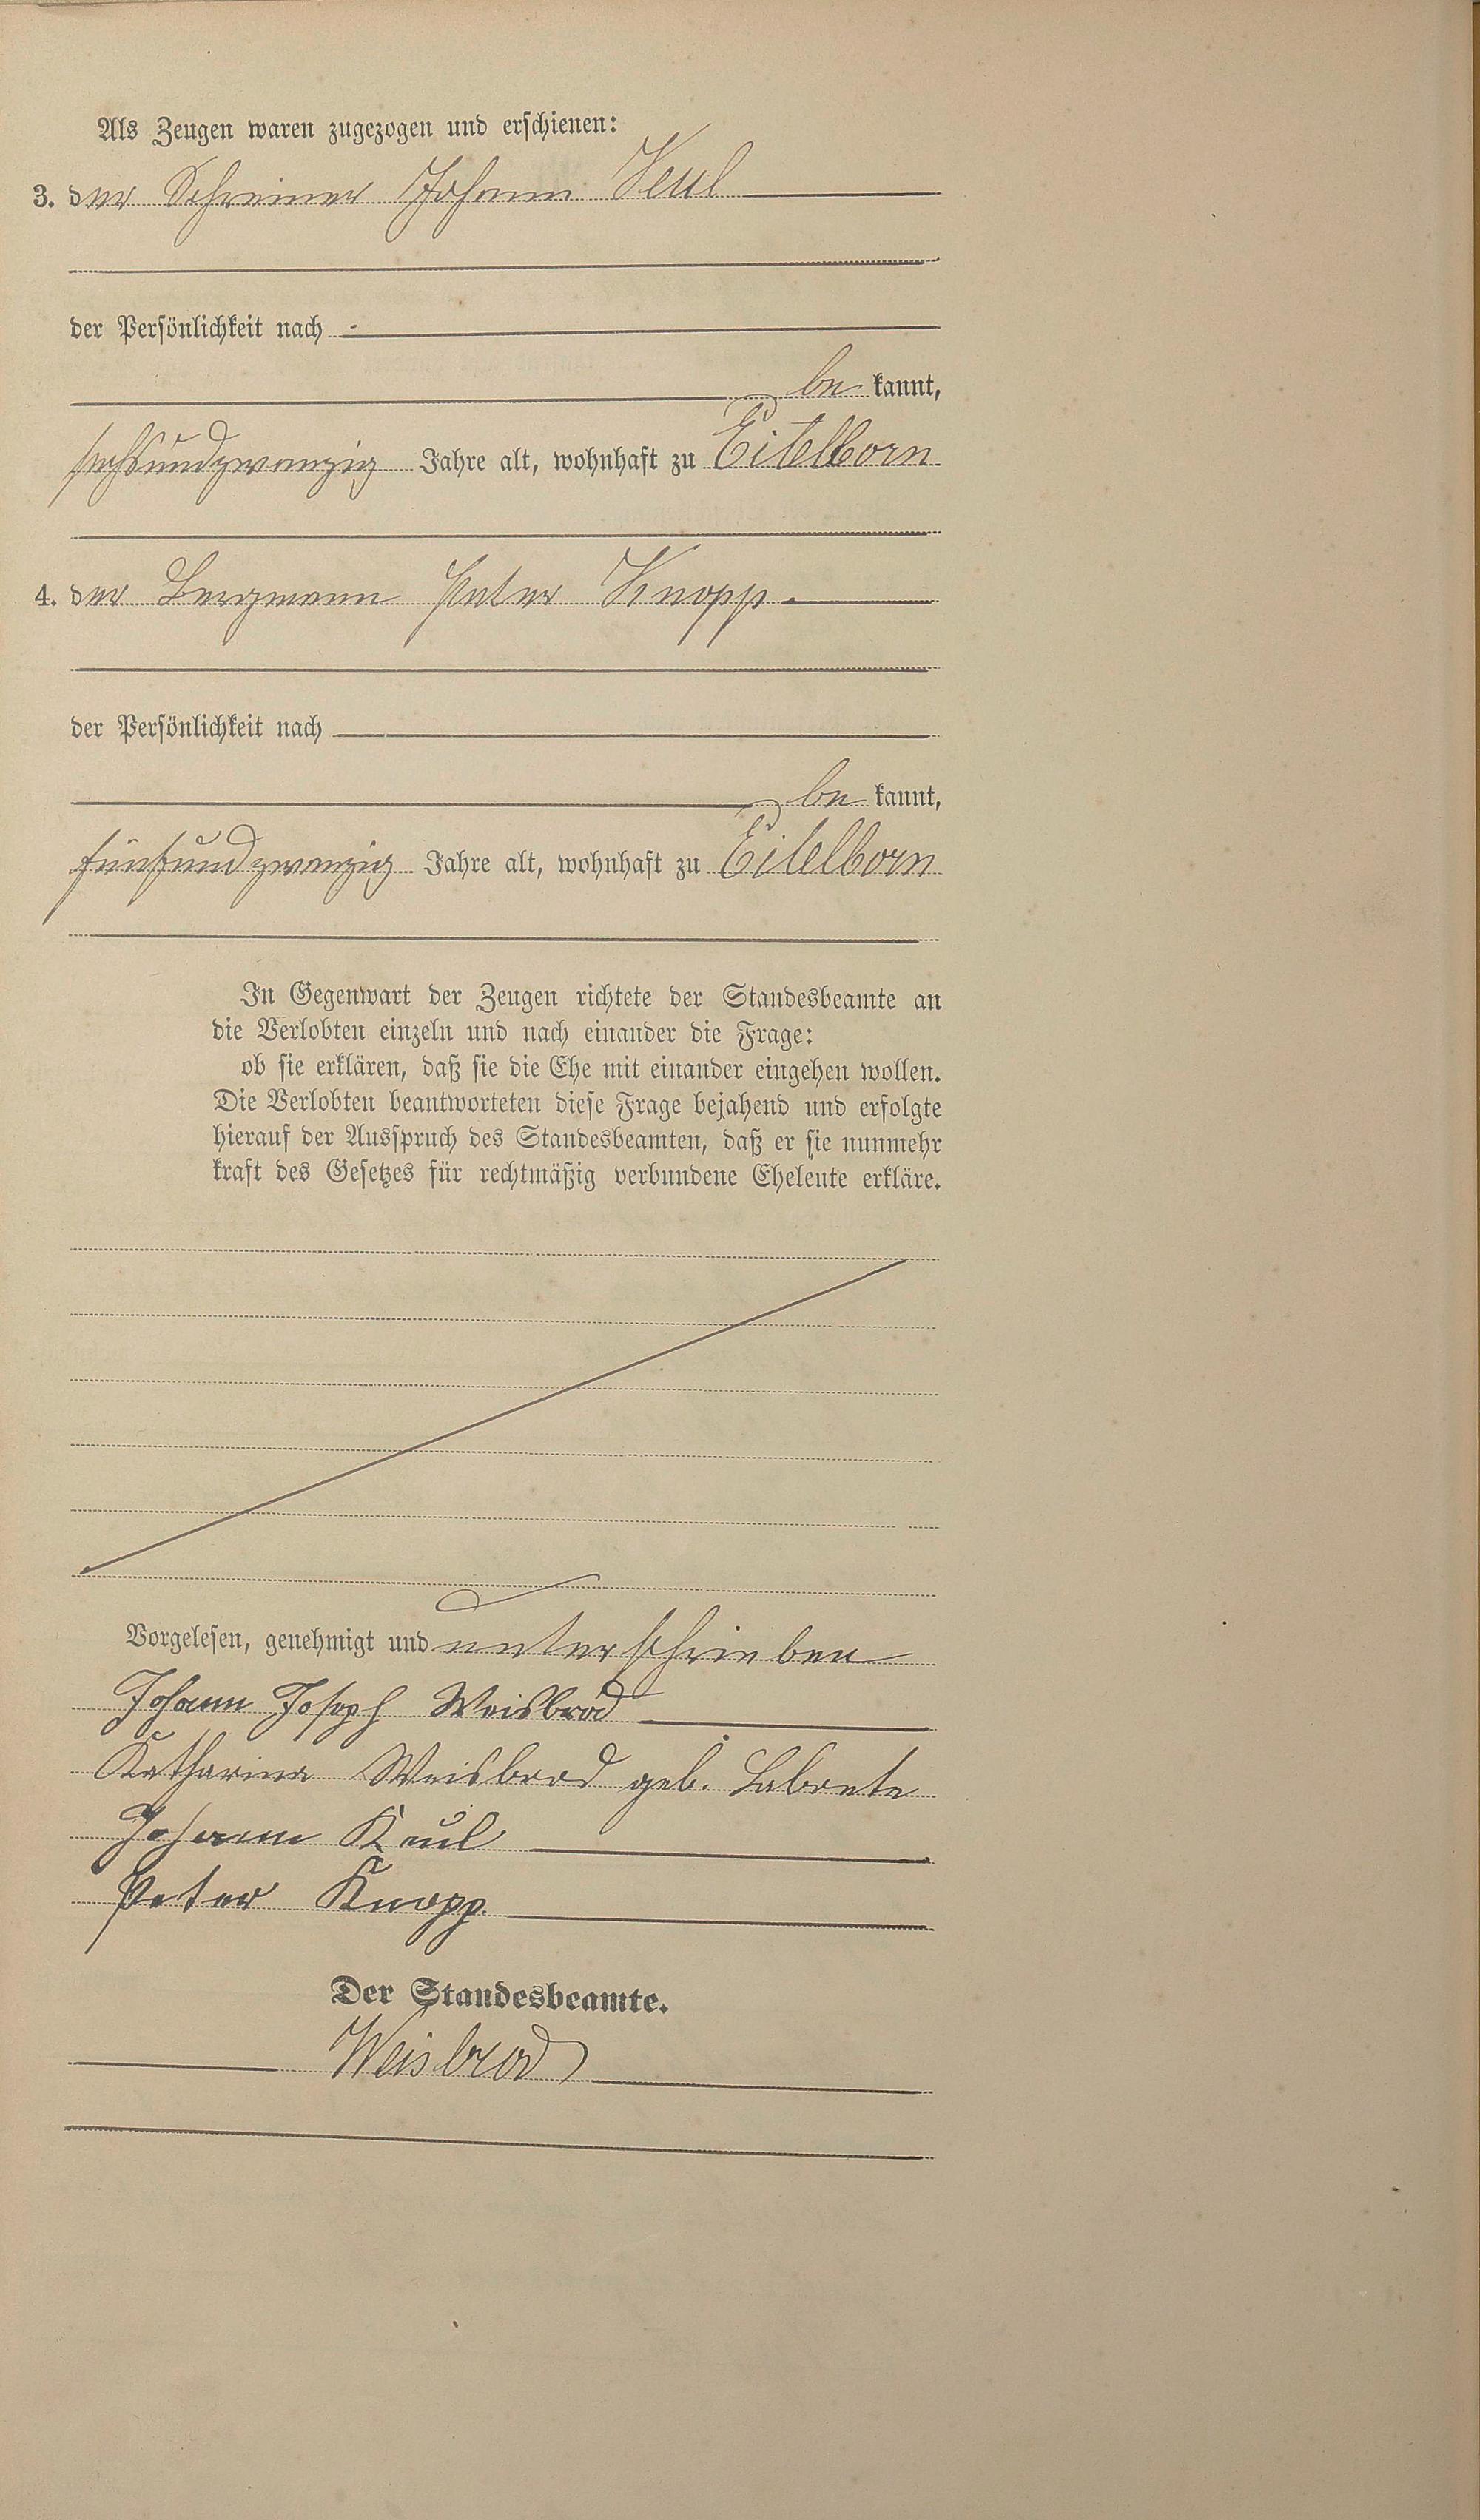 Als Zeugen waren zugezogen und erschienen:
3. der Schreiner Johann Keul
der Persönlichkeit nach
be kannt,
sechsundzwanzig Jahre alt, wohnhaft zu Eitelborn
4. der Bergmann Peter Knopp.
der Persönlichkeit nach
be kannt,
fünfundzwanzig Jahre alt, wohnhaft zu Eitelborn
In Gegenwart der Zeugen richtete der Standesbeamte an
die Verlobten einzeln und nach einander die Frage:
ob sie erklären, daß sie die Ehe mit einander eingehen wollen.
Die Verlobten beantworteten diese Frage bejahend und erfolgte
hierauf der Ausspruch des Standesbeamten, daß er sie nunmehr
kraft des Gesetzes für rechtmäßig verbundene Eheleute erkläre.
Vorgelesen, genehmigt und unterschrieben
Johann Joseph Weisbrod
Katharina Weisbrod geb. Labonte
Johann Keul
Peter Knopp.
Der Standesbeamte.
Weisbrod